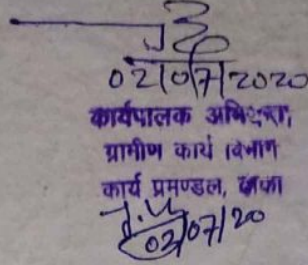 02/07/2020
कार्यपालक अभियन्ता,
ग्रामीण कार्य विभाग
कार्य प्रमण्डल,
02/07/20